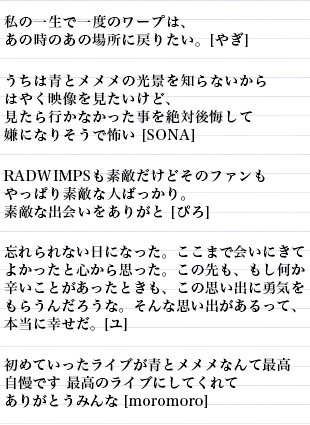 私の一生で一度のワープは、
あの時のあの場所に戻りたい。[やぎ]
うちは青とメメメの光景を知らないから
はやく映像を見たいけど、
見たら行かなかった事を絶対後悔して
嫌になりそうで怖い [SONA]
RADWIMPSも素敵だけどそのファンも
やっぱり素敵な人ばっかり。
素敵な出会いをありがと [ぴろ]
忘れられない日になった。ここまで会いにきて
よかったと心から思った。この先も、もし何か
辛いことがあったときも、この思い出に勇気を
もらうんだろうな。そんな思い出があるって、
本当に幸せだ。[ユ]
初めていったライブが青とメメメなんて最高
自慢です 最高のライブにしてくれて
ありがとうみんな [moromoro]